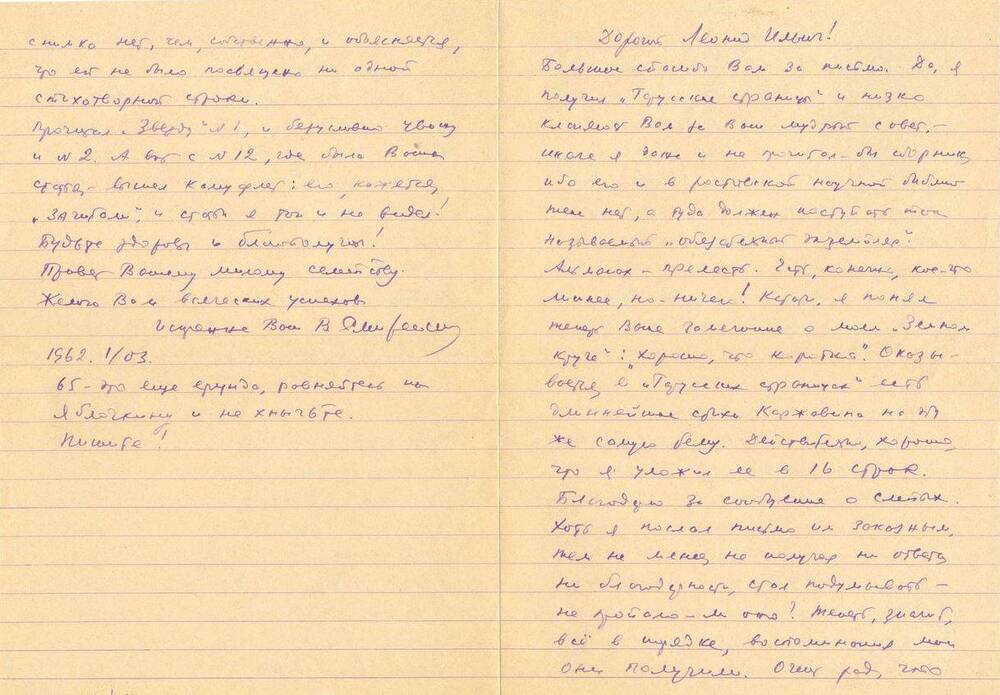 Дорогой Леонид Ильич!
Большое спасибо Вам за письмо. Да, я
получил „Тарусские страницы" и низко
кланяюсь Вам за Ваш мудрый совет,-
иначе я даже и не прочитал-бы сборник,
ибо его и в ростовской научной библио
теке нет, а туда должен поступать так
называемый „обязательный экземпляр".
Альманах - прелесть. Есть, конечно, кое-что
слабее, но-ничего! Кстати, я понял
теперь Ваше замечание о моем „Земном
круге": хорошо, что коротко". Оказы-
вается в „Тарусских страницах" есть
длиннейшие стихи Коржавина на эту
же самую тему. Действительно, хорошо,
что я уложил ее в 16 строк.
Благодарю за сообщение о слепых.
Хоть я послал письмо им заказным,
тем не менее не получая ни ответа
ни благодарности, стал подумывать -
не пропало-ли оно! Теперь, значит,
всё в порядке, воспоминания мои
они получили. Очень рад, что
снимка нет, чем, собственно, и объясняется,
что ей не было посвящено ни одной
стихотворной строки.
Прочитал „Звезду" N1, и безусловно
и N2. А вот с N12, где была Ваша
статья - вышел камуфлет: его, кажется,
„зачитали", и статьи я так и не видел!
Будьте здоровы и благополучны!
Привет Вашему милому семейству.
Желаю Вам всяческих успехов
Искренне Ваш В
1962. 1/03.
65 - это еще ерунда, равняйтесь на
Яблочкину и не хнычьте.
Пишите!